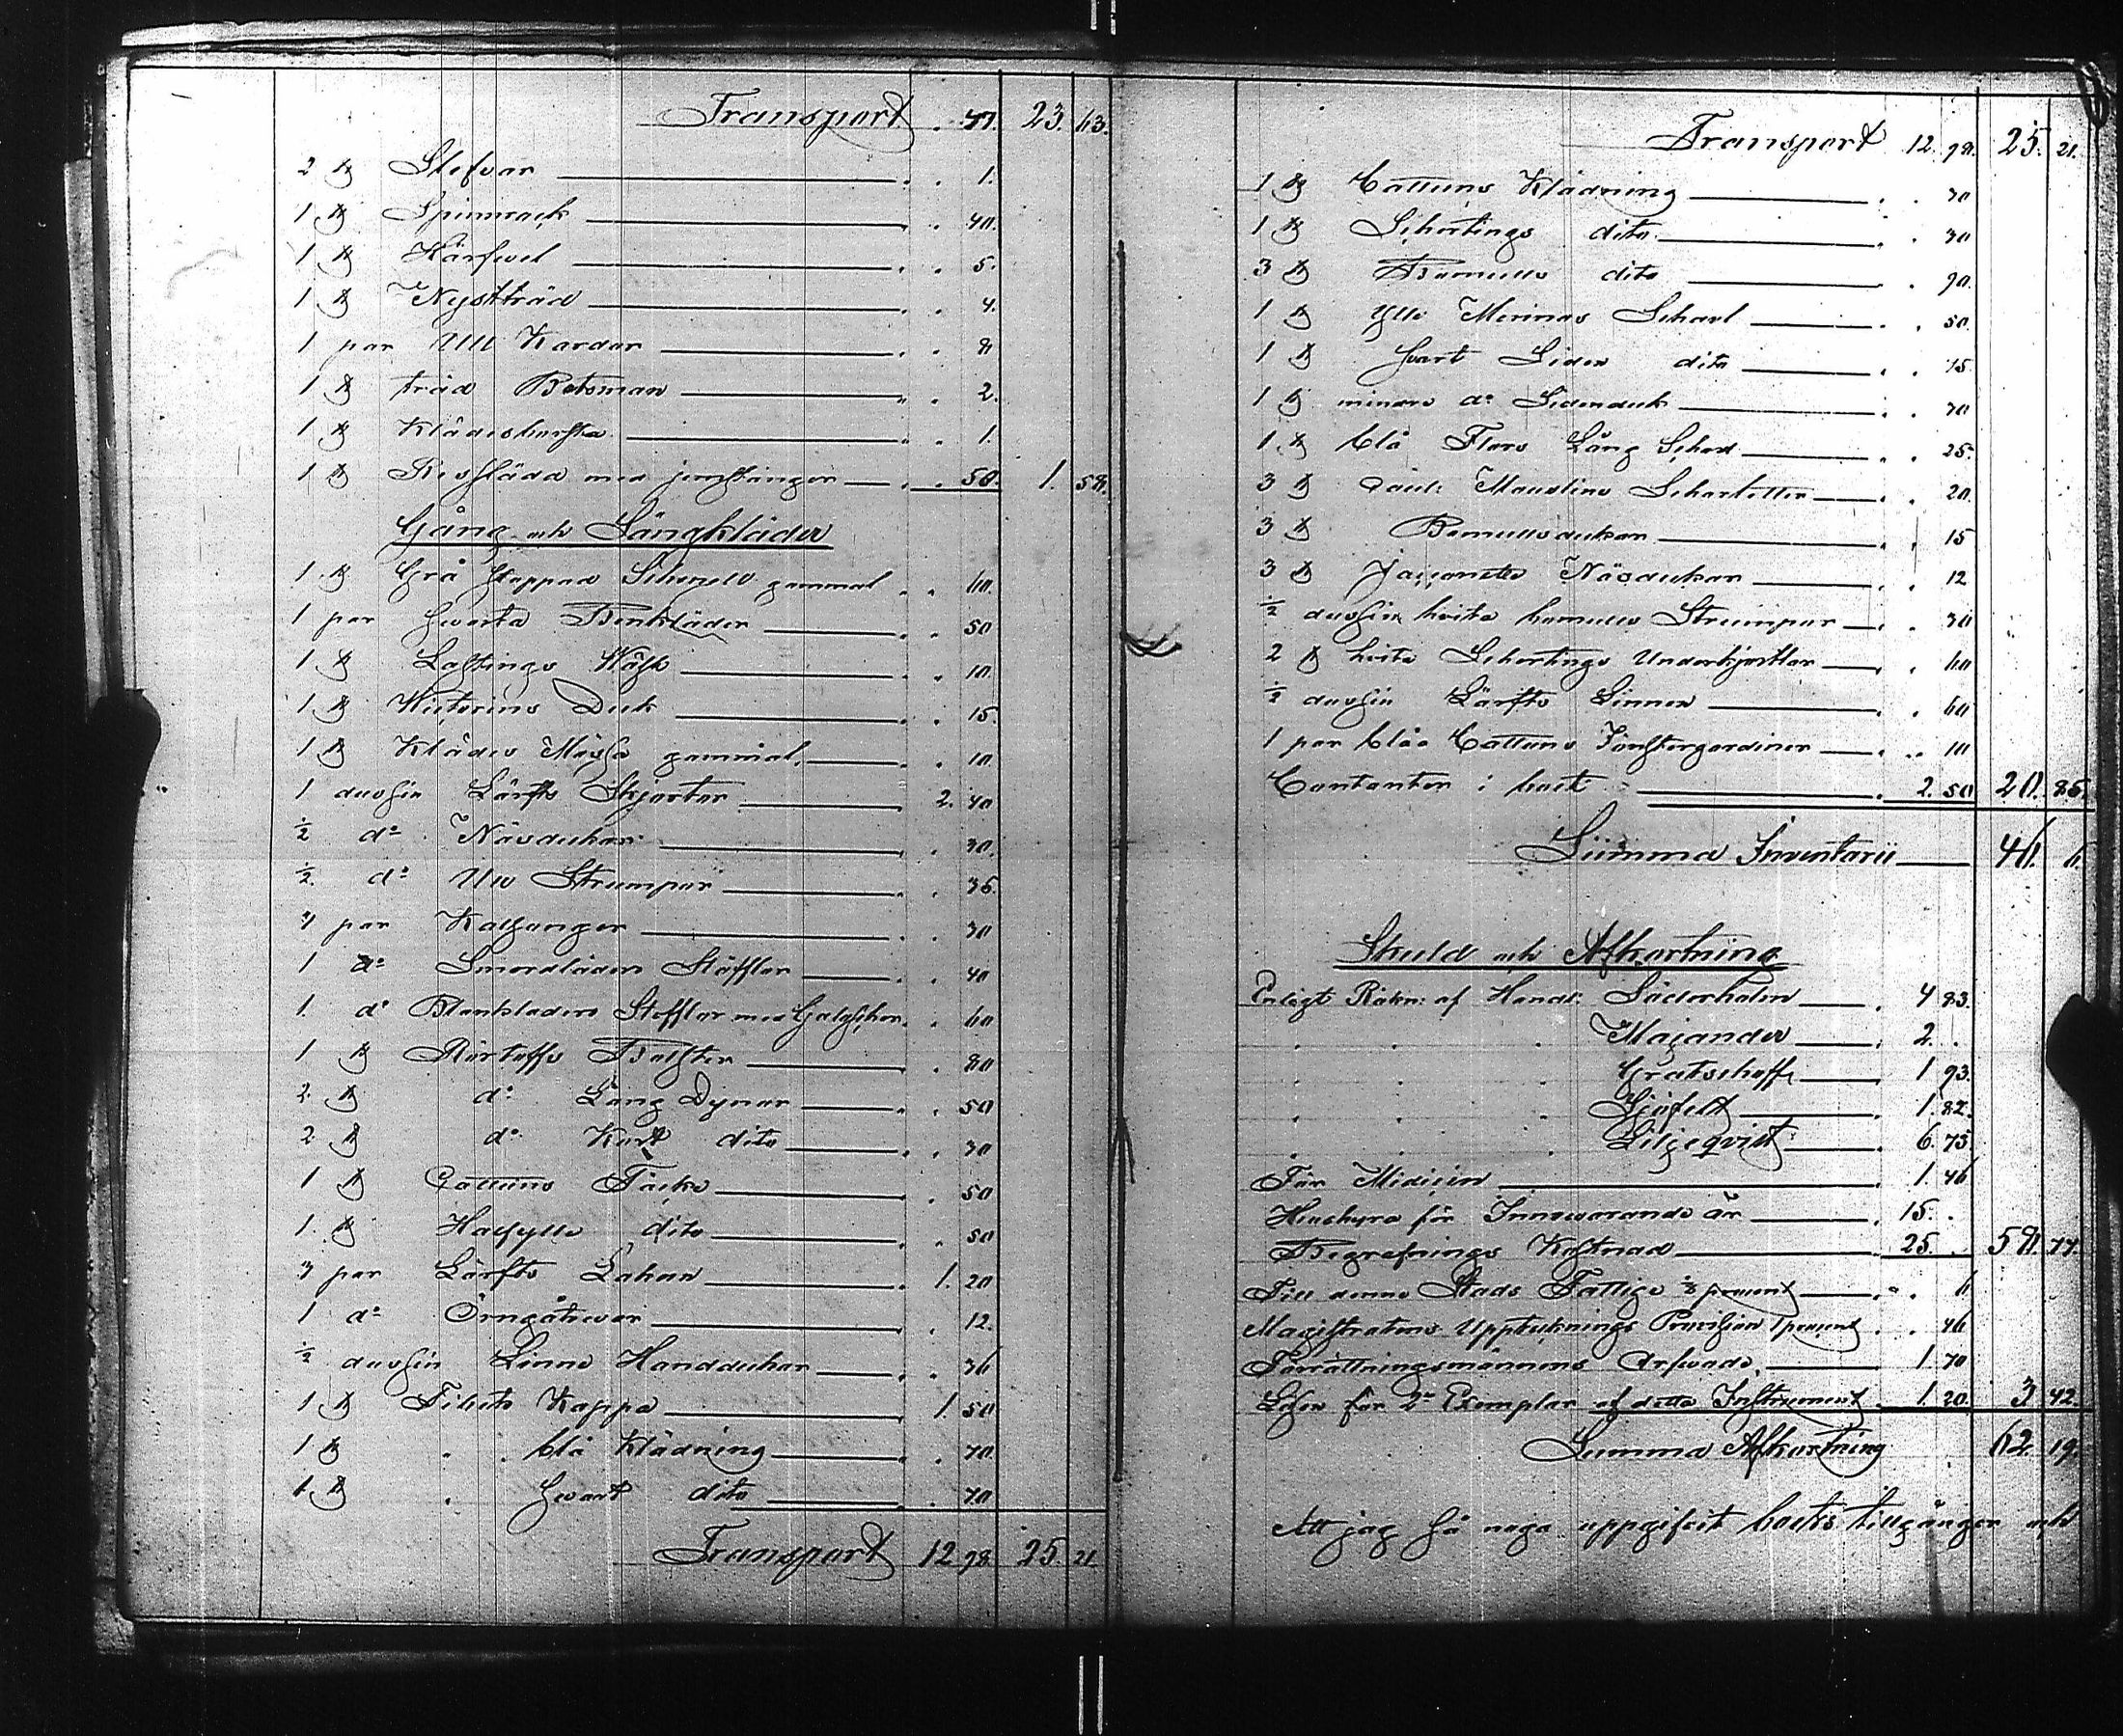 Transport . 47. 23. 63.
2 st Stefvar . . 1.
1 st Spinnrock . . 40.
1 st Härfvel . . 5.
1 st Nystträd . . 4.
1 par Ull Kardor . . 8
1 st träd Betsman . . 2.
1 st Klädesborsta . . 1.
1 st Ressläda med jernstänger . . 50. 1. 58.
Gång och Sängkläder
1 st Grå stappad gammal . . 60.
1 par Swarta Benkläder . . 50
1 st Lastings Wäst . . 10.
1 st Duk . . 15.
1 st Klädes Mössa gammal . . 10.
1 dussin Lärfts Skjortor . 2. 40
½ do Näsdukar . . 30.
½ do Ull Strumpor . . 36.
3 par Kalsonger . . 30
1 do Smordläders Stöfflor . . 40
1 do Blankläders Stöfflor med . . 60
1 st Bolster . . 80
2 st do Lång Dynor . . 50
2 st do Kort dito . . 30
1 st Cattuns Täcke . . 50
1 st Halfylle dito . . 50
3 par Lärfts Lakan . 1. 20
1 do Örngåttswar . . 12.
½ dussin Linne Handdukar . . 36
1 st Tibets Kappa . 1. 50
1 st " blå Klädning . . 70.
1 st " Swart dito . . 70
Transport 12 98. 25. 21
Transport 12. 98. 25. 21.
1 st Cattuns Klädning . . 70
1 st Schertings dito . . 30
3 st Bomulls dito . . 90.
1 st Ylle Merinos Schavl . . 50
1 st Svart Siden dito . . 75.
1 st mindre do Sidenduk . . 30
1 st blå Flors Lång Schavl . . 25.
3 st Schavletter . . 20.
3 st Bomullsdukar . . 15
3 st Näsdukar . . 12
½ dussin hvita bomulls Strumpor . . 30
2 st hvita Schertings Underkjortlar . . 60
½ dussin Lärfts Linnen . . 60
1 par blåa Cattuns Fönstergardiner . . 10
Contanter i boet . 2. 50 20. 85.
Summa Inventarii 46. 6.
Skuld och Afkortning
Enligt Räkn: af Handl: Söderholm . 4 83.
" " " Majander . 2. .
" " " Gratschoff . 1 93.
" " " Sjöfelt . 1. 82.
" " " Liljeqvist . 6. 73
För Medicin . 1. 46
Huushyra för Innevarande år . 15. .
Begrafnings Kostnad . 25. . 58. 77.
Till denne Stads Fattige ⅛ procent . . 6
Magistratens Upptecknings Provision 1 procent . . 46
Förrättningsmännens Arfwode . 1. 70
Lösen för 2ne Exemplar af detta Instrument . 1. 20. 3 42.
Summa Afkortning 62. 19.
Att jag så noga uppgifvit boets tillgångar och